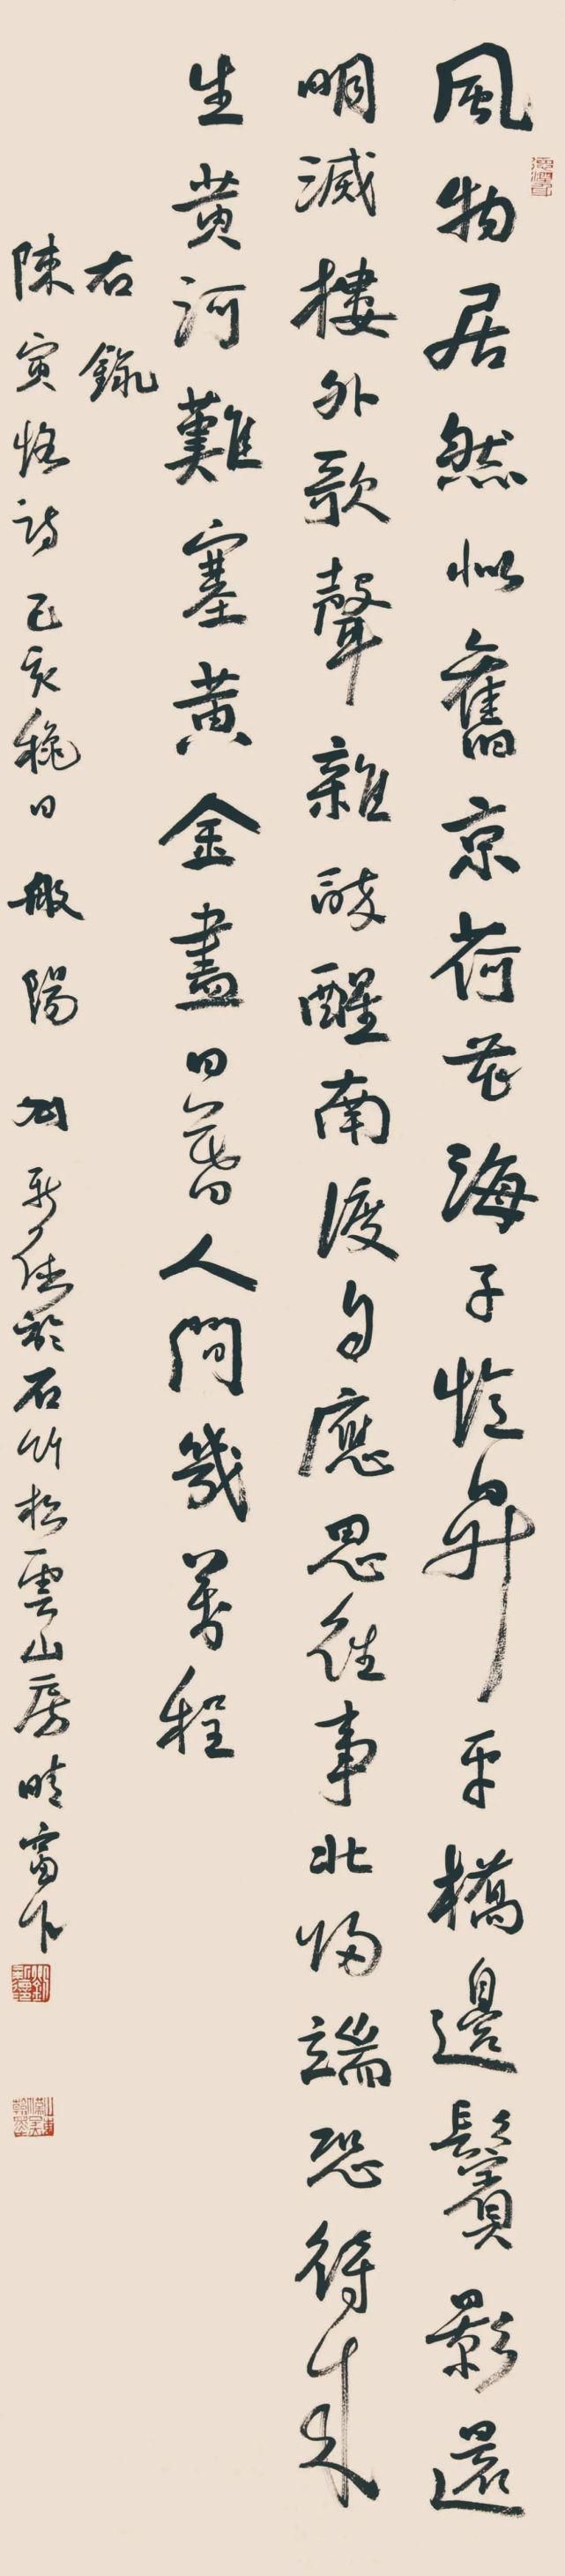 風物居然似舊京荷花海子憶昇平橋邊鬢影還
明滅樓外歌聲雜醉醒南渡自應思往事北歸端恐待來
生黃河難塞黃金盡日暮人間幾萬程
右錄
陳寅恪詩己亥穐日般陽劉新德於石竹松雲山房晴窗下